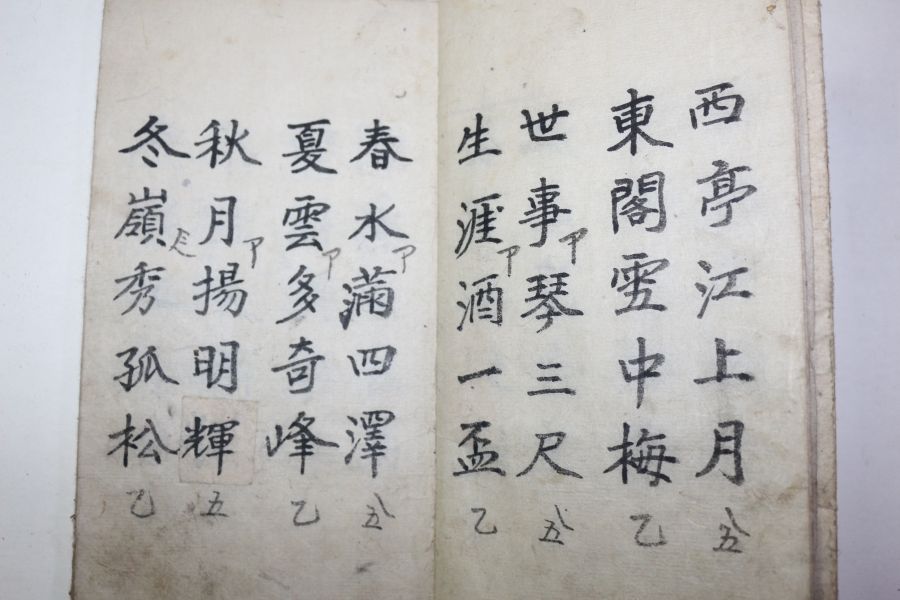 西亭江上月 五
東閣雪中梅 乙
世事琴三尺 五
生涯酒一盃 乙
春水滿四澤 五
夏雲多奇峰 乙
秋月揚明輝 五
冬嶺秀孤松 乙